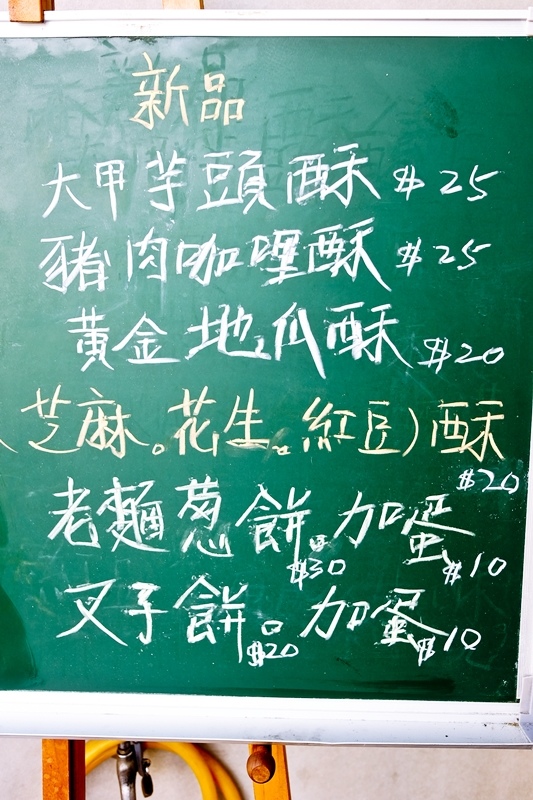 新品
大甲芋頭酥 $25
豬肉咖哩酥 $25
黃金地瓜酥 $20
(芝麻。花生。紅豆)酥 $20
老麵蔥餅。加蛋
$30 $10
叉子餅。加蛋
$20 $10